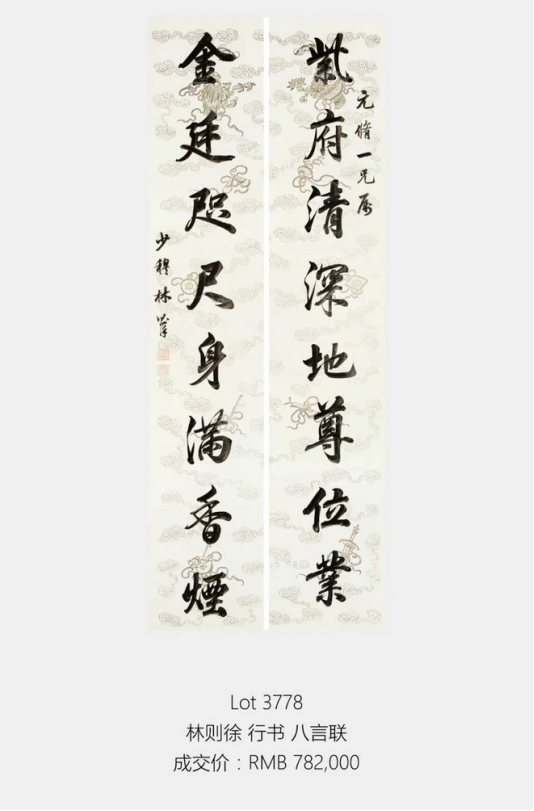 元脩一兄屬
紫府清深地尊位業
金廷咫尺身滿香煙
少穆林則徐
Lot 3778
林则徐 行书 八言联
成交价：RMB 782,000